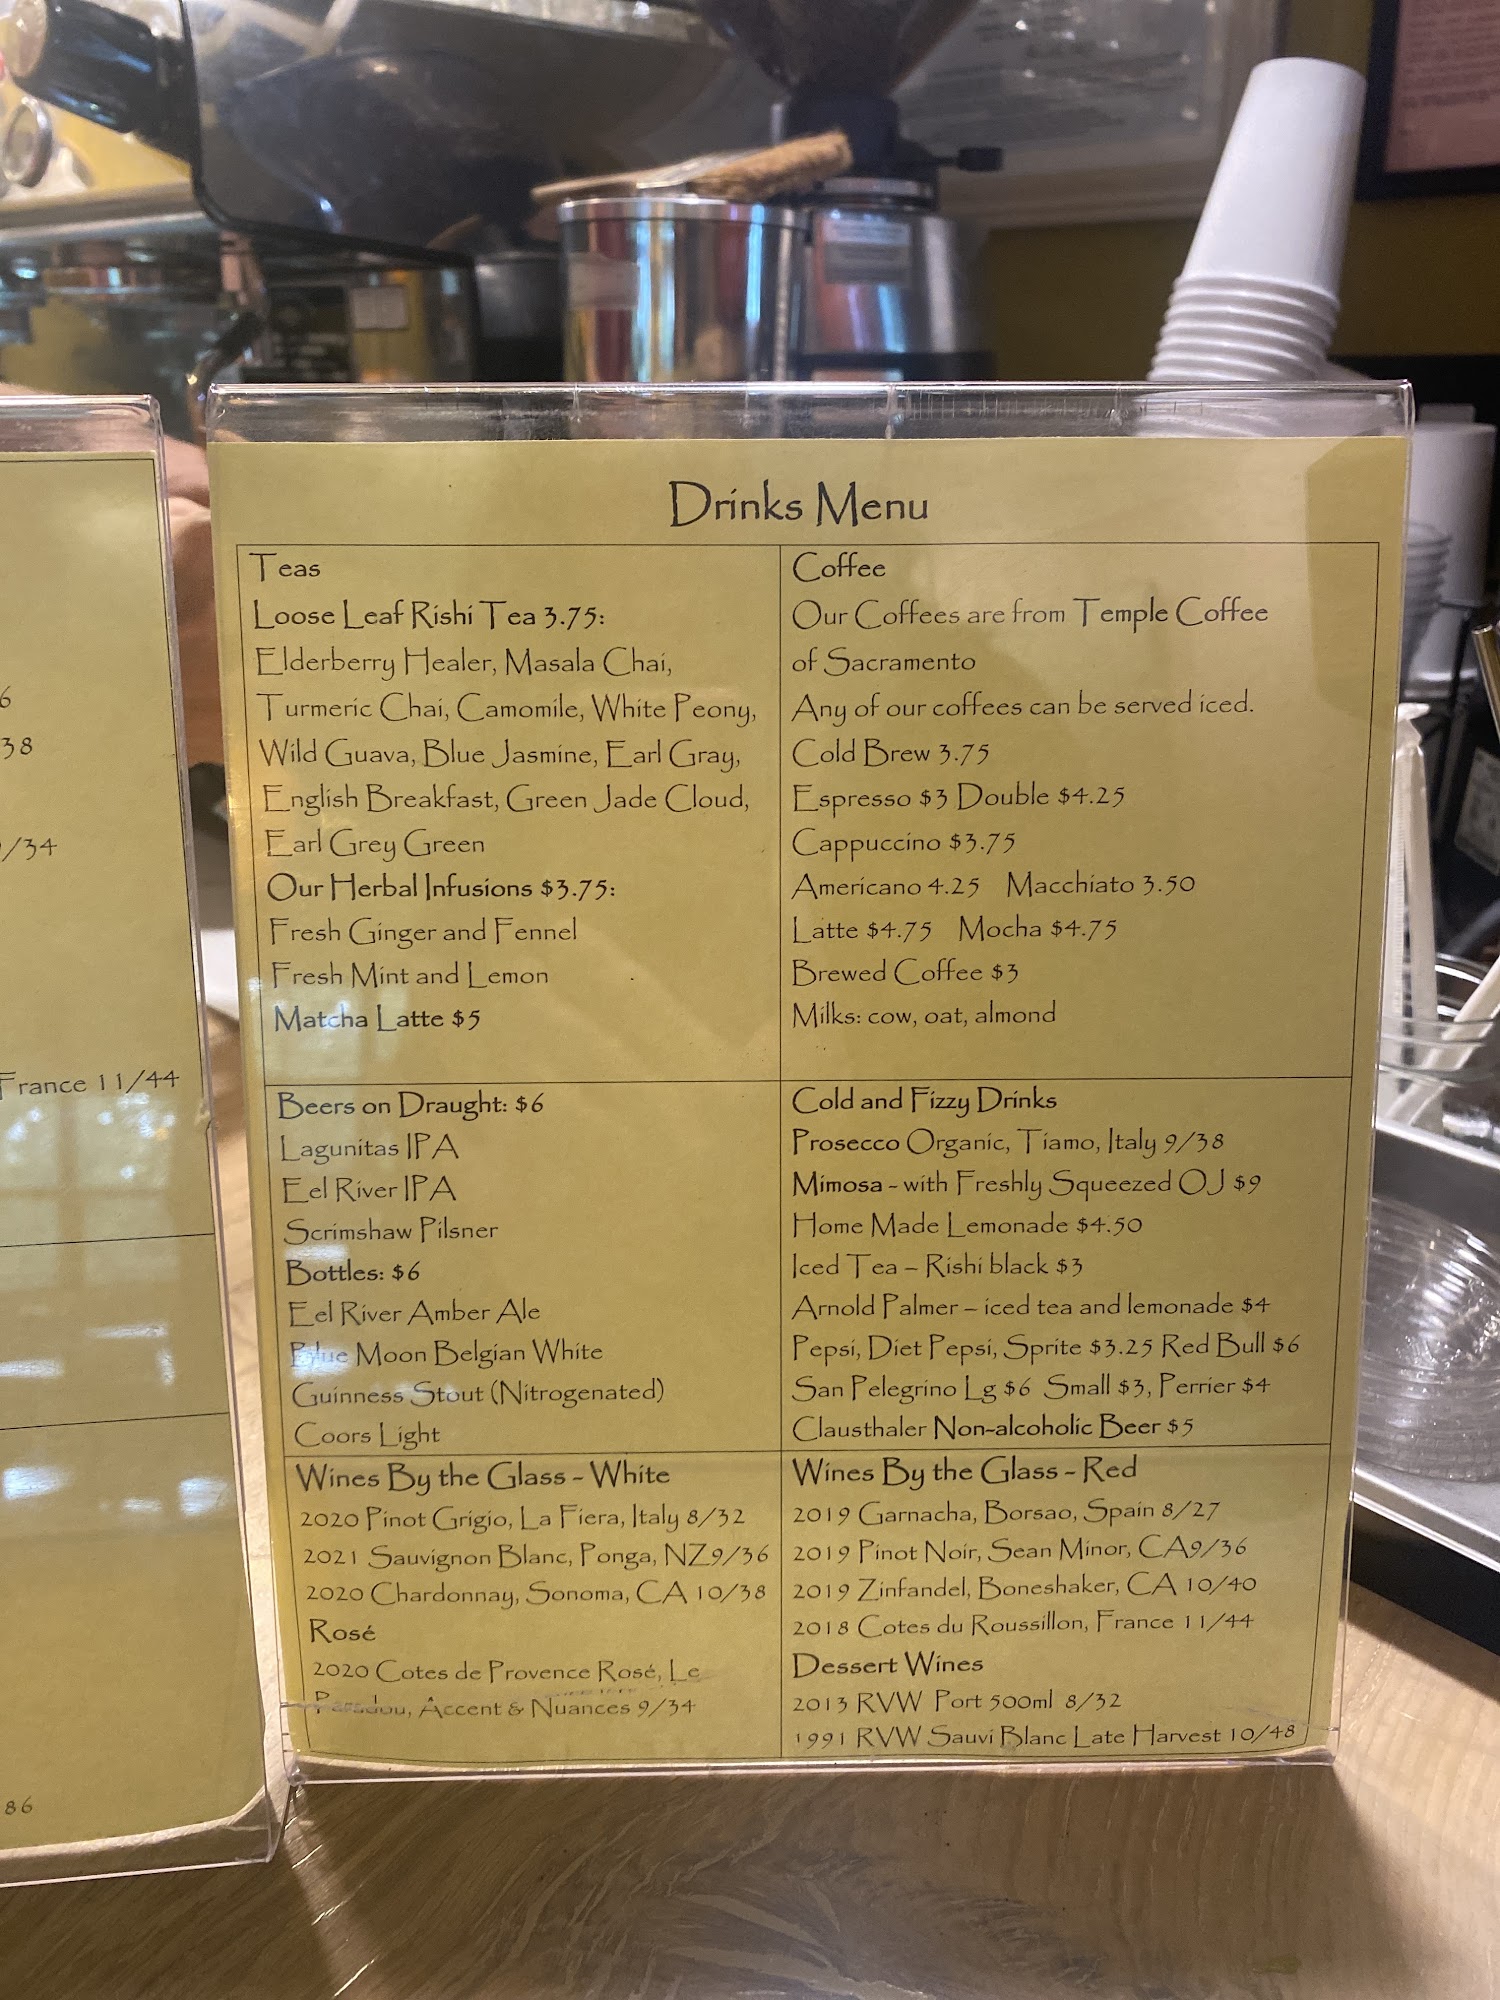 Drinks Menu
Teas
Loose Leaf Rishi Tea 3.75:
Elderberry Healer, Masala Chai,
Turmeric Chai, Camomile, White Peony,
Wild Guava, Blue Jasmine, Earl Gray,
English Breakfast, Green Jade Cloud,
Earl Grey Green
Our Herbal Infusions $3.75:
Fresh Ginger and Fennel
Fresh Mint and Lemon
Matcha Latte $5
Coffee
Our Coffees are from Temple Coffee
of Sacramento
Any of our coffees can be served iced.
Cold Brew 3.75
Espresso $3 Double $4.25
Cappuccino $3.75
Americano 4.25 Macchiato 3.50
Latte $4.75 Mocha $4.75
Brewed Coffee $3
Milks: cow, oat, almond
Beers on Draught: $6
Lagunitas IPA
Eel River IPA
Scrimshaw Pilsner
Bottles: $6
Eel River Amber Ale
Blue Moon Belgian White
Guinness Stout (Nitrogenated)
Coors Light
Cold and Fizzy Drinks
Prosecco Organic, Tiamo, Italy 9/38
Mimosa - with Freshly Squeezed OJ $9
Home Made Lemonade $4.50
Iced Tea – Rishi black $3
Arnold Palmer – iced tea and lemonade $4
Pepsi, Diet Pepsi, Sprite $3.25 Red Bull $6
San Pelegrino Lg $6 Small $3, Perrier $4
Clausthaler Non-alcoholic Beer $5
Wines By the Glass - White
2020 Pinot Grigio, La Fiera, Italy 8/32
2021 Sauvignon Blanc, Ponga, NZ9/36
2020 Chardonnay, Sonoma, CA 10/38
Rosé
2020 Cotes de Provence Rosé, Le
Paradou, Accent & Nuances 9/34
Wines By the Glass - Red
2019 Garnacha, Borsao, Spain 8/27
2019 Pinot Noir, Sean Minor, CA9/36
2019 Zinfandel, Boneshaker, CA 10/40
2018 Cotes du Roussillon, France 11/44
Dessert Wines
2013 RVW Port 500ml 8/32
1991 RVW Sauvi Blanc Late Harvest 10/48
6
38
/34
France 11/44
86